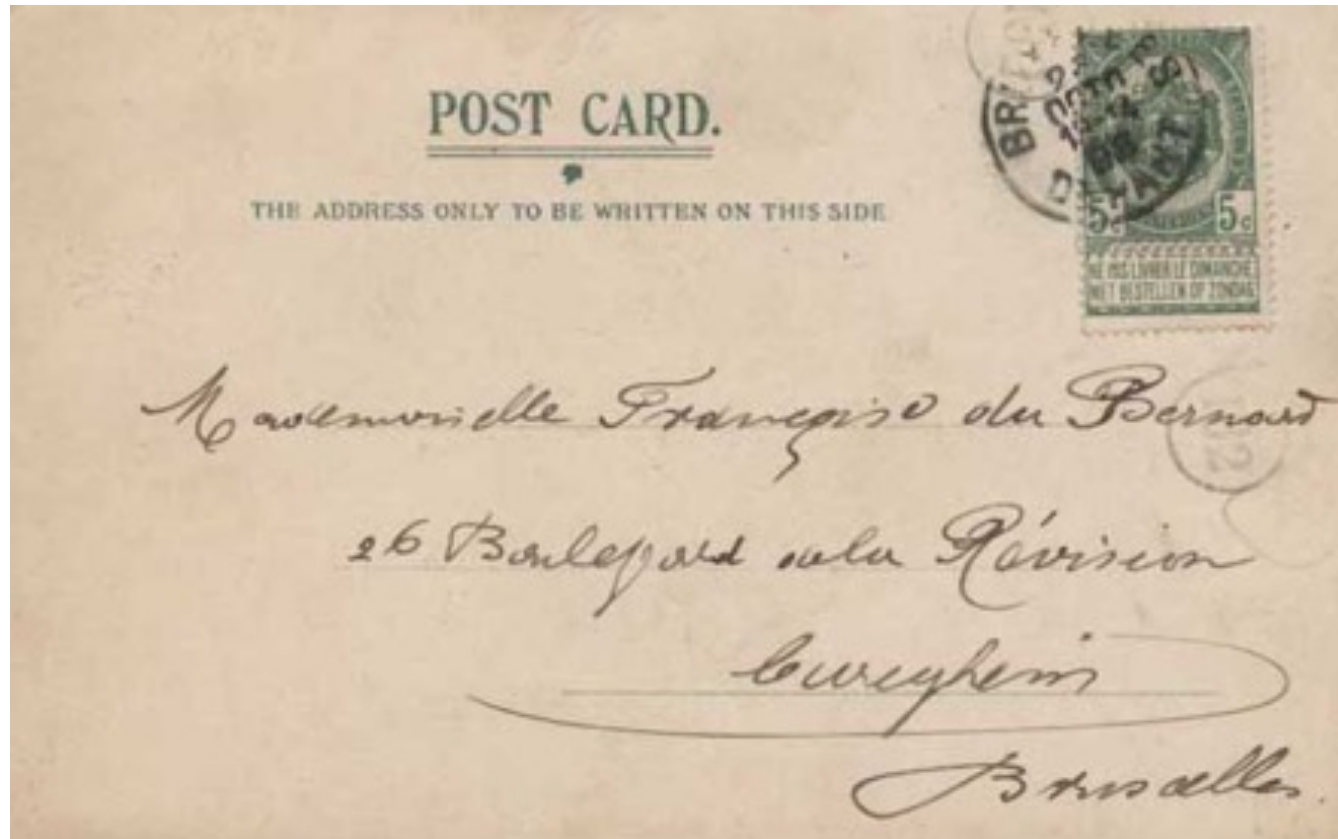 POST CARD.
THE ADDRESS ONLY TO BE WRITTEN ON THIS SIDE
5c 5c
NE PAS LIVRER LE DIMANCHE
NIET BESTELLEN OP ZONDAG
Mademoiselle Françoise du Bernard
26 Boulevard de la Révision
Cureghem
Bruxelles.